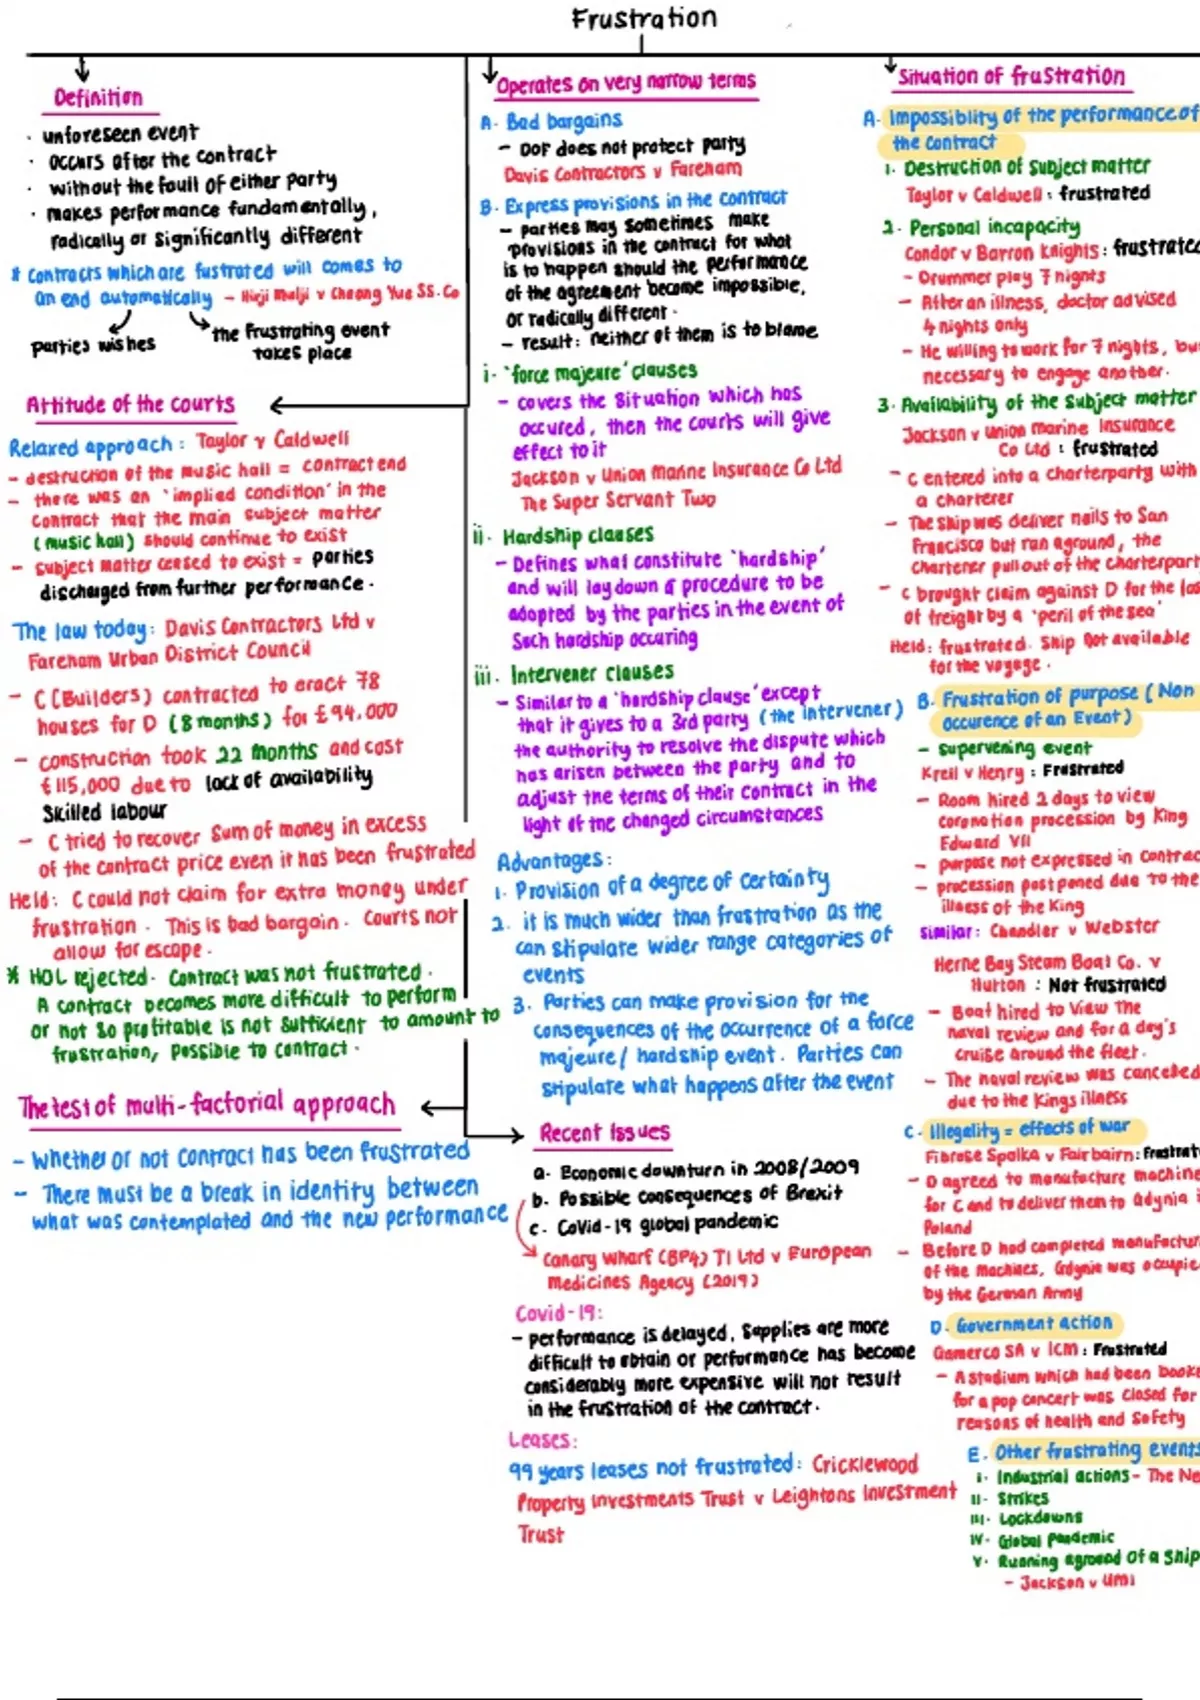 Frustration
Definition
· unforeseen event
· occurs after the contract
· without the fault of either party
· makes performance fundamentally,
radically or significantly different
* Contracts which are fustrated will comes to
an end automatically - Hirji Mulji v Cheong Yue SS. Co
parties wishes
the frustrating event
takes place
Attitude of the courts
Relaxed approach: Taylor v Caldwell
- destruction of the music hall = contract end
- there was an 'implied condition' in the
contract that the main subject matter
(music hall) should continue to exist
- subject matter ceased to exist = parties
discharged from further performance.
The law today: Davis Contractors Ltd v
Fareham Urban District Council
- C (Builders) contracted to erect 78
houses for D (8 months) for £94,000
- construction took 22 months and cost
£115,000 due to lack of availability
skilled labour
- C tried to recover sum of money in excess
of the contract price even it has been frustrated
Held: C could not claim for extra money under
frustration. This is bad bargain. Courts not
allow for escape.
* HOL rejected. Contract was not frustrated.
A contract becomes more difficult to perform
or not so profitable is not sufficient to amount to
frustration, possible to contract.
The test of multi-factorial approach
- whether or not contract has been frustrated
- There must be a break in identity between
what was contemplated and the new performance
Operates on very narrow terms
A. Bad bargains
- DOF does not protect party
Davis Contractors v Fareham
B. Express provisions in the contract
- parties may sometimes make
provisions in the contract for what
is to happen should the performance
of the agreement become impossible,
or radically different.
- result: neither of them is to blame
i. 'force majeure' clauses
- covers the situation which has
occured, then the courts will give
effect to it
Jackson v Union Marine Insurance Co Ltd
The Super Servant Two
ii. Hardship clauses
- Defines what constitute 'hardship'
and will lay down a procedure to be
adopted by the parties in the event of
such hardship occuring
iii. Intervener clauses
- Similar to a 'hardship clause' except
that it gives to a 3rd party (the intervener)
the authority to resolve the dispute which
has arisen between the party and to
adjust the terms of their contract in the
light of the changed circumstances
Advantages:
1. Provision of a degree of certainty
2. it is much wider than frustration as the
can stipulate wider range categories of
events
3. Parties can make provision for the
consequences of the occurrence of a force
majeure / hardship event. Parties can
stipulate what happens after the event
Recent Issues
a. Economic downturn in 2008/2009
b. Possible consequences of Brexit
c. Covid-19 global pandemic
Canary Wharf (BP4) T1 Ltd v European
Medicines Agency (2019)
Covid-19:
- performance is delayed, supplies are more
difficult to obtain or performance has become
considerably more expensive will not result
in the frustration of the contract.
Leases:
99 years leases not frustrated: Cricklewood
Property Investments Trust v Leightons Investment
Trust
Situation of frustration
A. Impossiblity of the performance of
the contract
1. Destruction of subject matter
Taylor v Caldwell: frustrated
2. Personal incapacity
Condor v Barron Knights: frustrated
- Drummer play 7 nights
- After an illness, doctor advised
4 nights only
- He willing to work for 7 nights, but
necessary to engage another.
3. Availability of the subject matter
Jackson v Union Marine Insurance
Co Ltd : frustrated
- C entered into a charterparty with
a charterer
- The ship was deliver nails to San
Francisco but ran aground, the
charterer pull out of the charterpart
- C brought claim against D for the los
of freight by a 'peril of the sea'
Held: frustrated. Ship not available
for the voyage.
B. Frustration of purpose (Non
occurence of an Event)
- supervening event
Krell v Henry : Frustrated
- Room hired 2 days to view
coronation procession by King
Edward VII
- purpose not expressed in contrac
- procession postponed due to the
illness of the King
similar: Chandler v Webster
Herne Bay Steam Boat Co. v
Hutton : Not frustrated
- Boat hired to view the
naval review and for a day's
cruise around the fleet.
- The naval review was cancelled
due to the Kings illness
C. Illegality = effects of war
Fibrose Spolka v Fairbairn: frustrat
- D agreed to manufacture machine
for C and to deliver them to Gdynia i
Poland
- Before D had completed manufactur
of the machines, Gdynia was occupie
by the German Army
D. Government action
Gamerco SA v ICM : Frustrated
- A stadium which had been booke
for a pop concert was closed for
reasons of health and safety
E. Other frustrating events
i. Industrial actions - The Ne
ii. Strikes
iii. Lockdowns
iv. Global Pandemic
v. Running aground of a ship
- Jackson v UMI